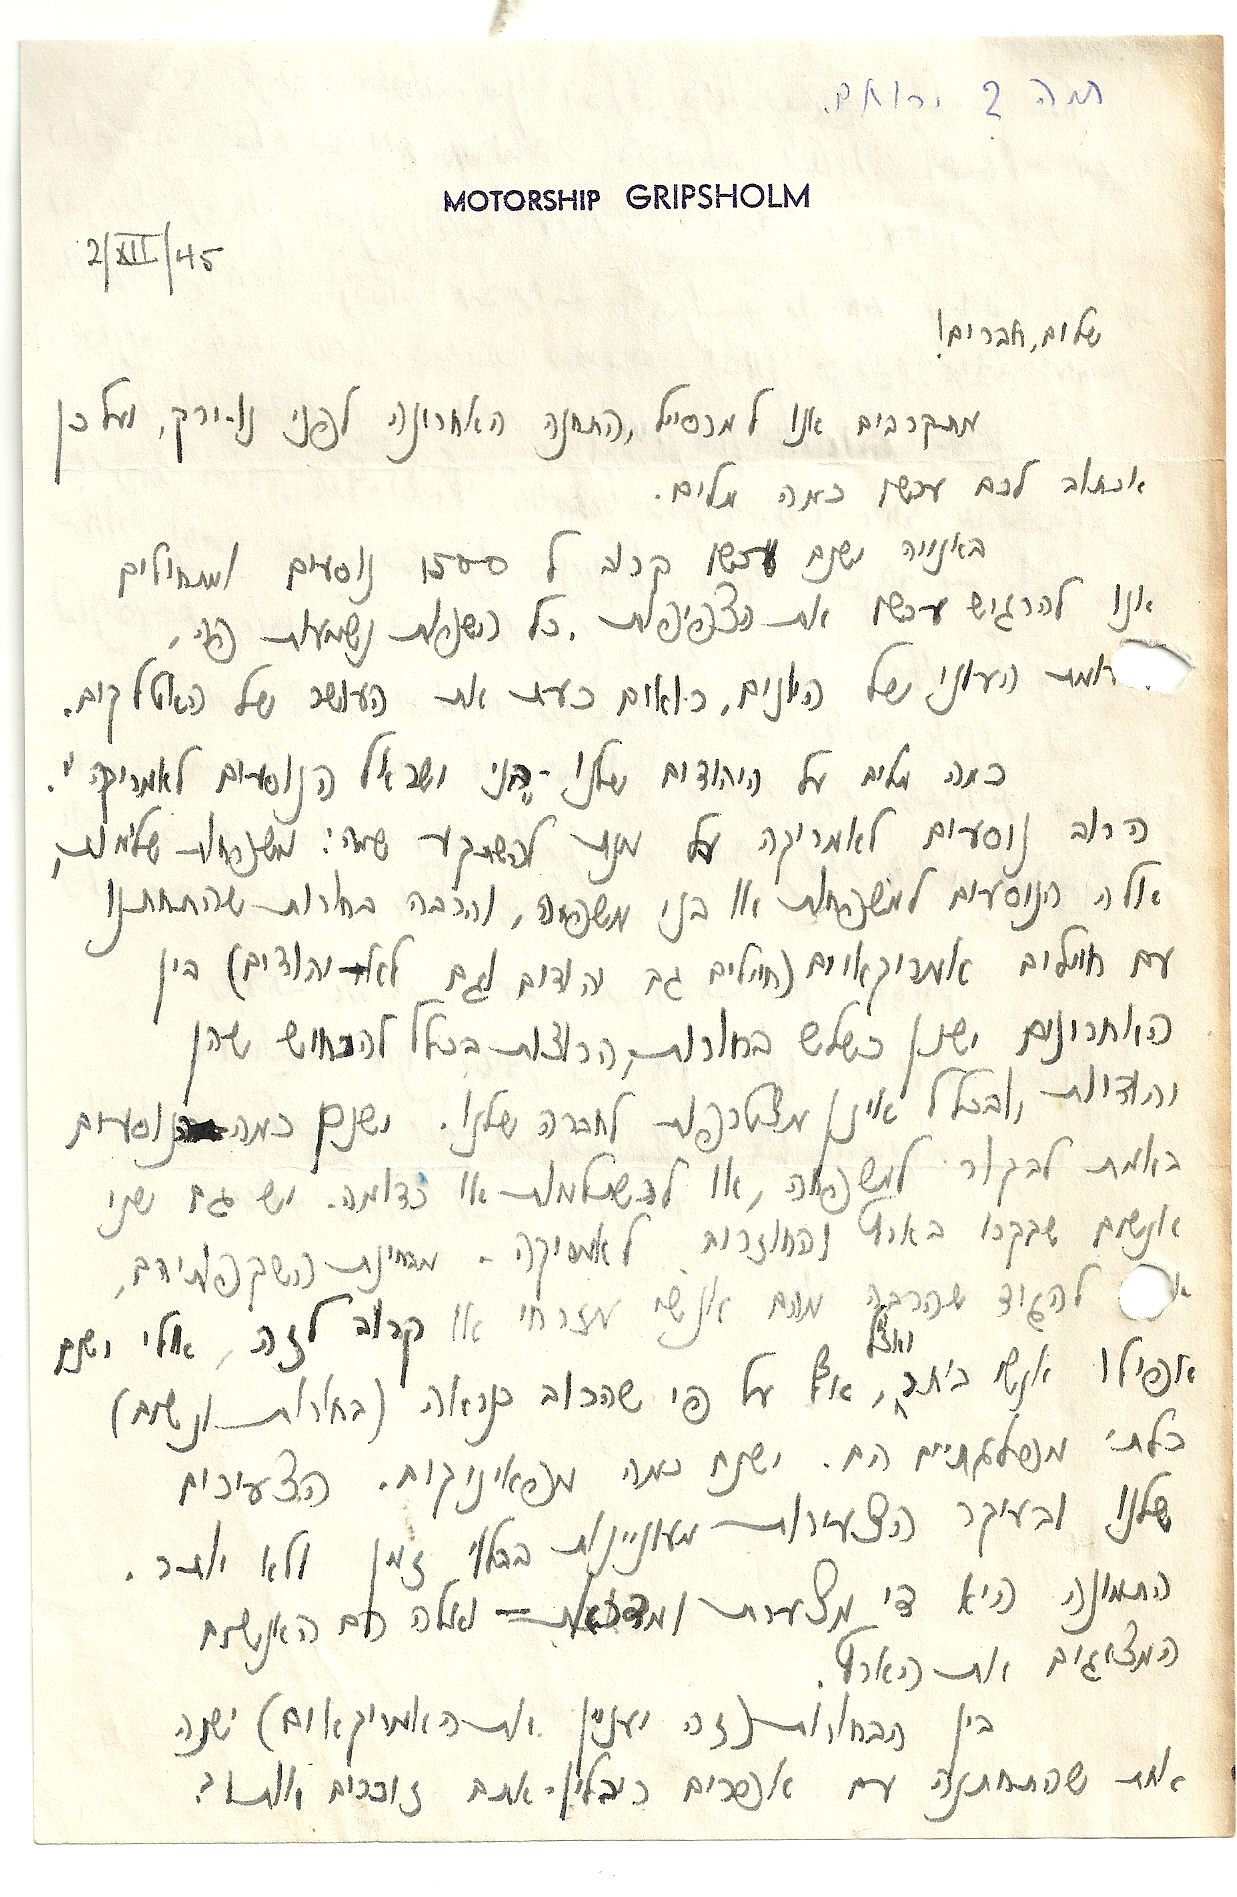 MOTORSHIP GRIPSHOLM
2/XII/45
שלום, חברים!
מתקרבים אנו למרסייל, התחנה האחרונה לפני נו-יורק, ועל כן
אכתוב לכם עכשו כמה מלים.
באנייה ישנם עכשו קרוב ל 1500 נוסעים ומתחילים
אנו להרגיש עכשו את הצפיפות. כל השפות נשמעות פה,
העוני של היונים, רואים כעת את העושר של האיטלקים.
כמה מלים על היהודים שלנו - "בני ישראל הנוסעים לאמריקה".
הרוב נוסעים לאמריקה על מנת להשתקע שמה: משפחות שלימות,
אלה הנוסעים למשפחות או בני משפחה, והרבה בחורות שהתחתנו
עם חיילים אמריקאיים (חיילים גם יהודים וגם לא-יהודים) בין
האחרונים ישנן כשלש בחורות, הרוצות בכלל להכחיש שהן
יהודיות, ובכלל אינן מצטרפות לחברה שלנו. ישנם כמה נוסעים
באמת לבקור למשפחה, או להשתלמות או כדומה. יש גם שני
אנשים שבקרו בארץ וחוזרים לאמריקה - מבחינת השקפותיהם,
להגיד שהרבה מהם אנשי מזרחי או קרוב לזה, אולי ישנם
אפילו אנשי בית"ר, ואצ"ל אף על פי שהרוב כנראה (בחורות ונשים)
בלתי מפלגתיים הם. ישנם כמה מפאיניקים. הצעירים
שלנו ובעיקר הצעירות מעוניינות בבלוי זמן ולא יותר.
התמונה היא די מצערת ואלה הם האנשים
המצגים את הארץ.
בין הבחורות (זה יעניין את האמריקאים) ישנה
אחת שהתחתנה עם אפרים ריבלין - אתם זוכרים אותו?